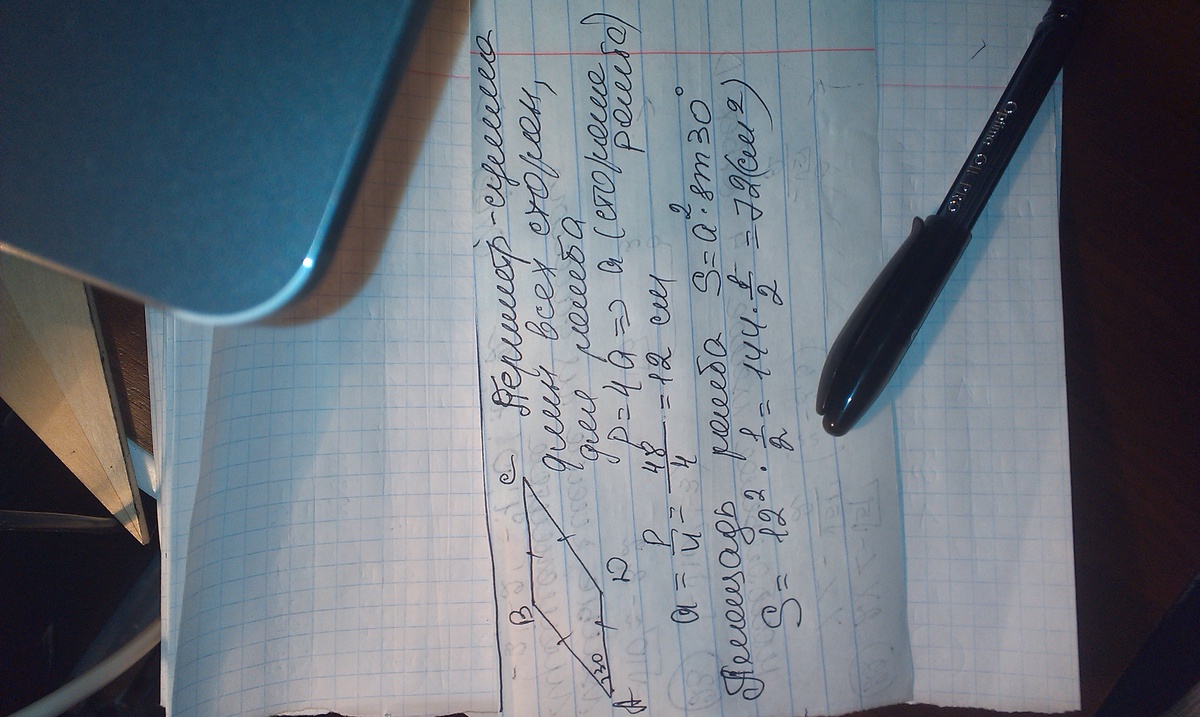 B C
A 30 D
Периметр - сумма
длин всех сторон,
для ромба
P = 4a => a (сторона
ромба)
a = P/4 = 48/4 = 12 см
Площадь ромба S = a² · sin 30°
S = 12² · 1/2 = 144 · 1/2 = 72 (см²)
Optima OIL PRO